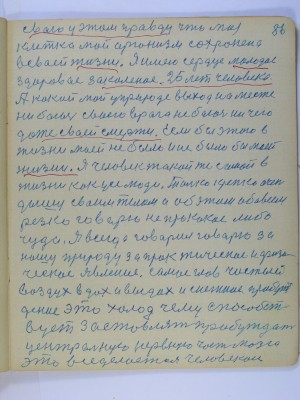 86
свого у этом правду что моя
клетка мой организм сохронена
в своей жизни. Я имею сердце молодое
здоровое закаленое 25 лет человека.
А какой мой у природе выход на месте
не боюсь своего врага не боюсь ни чего
даже своей смерти. Если бы этого в
жизни моей не было и не было бы моей
жизни. Я человек такой же самой в
жизни как усе люди. Только крепко
своим телом а об этом
резко говорю не про какое либо
чудо. Я всегда говорил говорю за
нашу природу за практическое и физи
ческое явление. Самое главное чистый
воздух вдох и выдох и снежное пробуж
дение это холод чему способст-
вует заставлять пробуждать
центральную нервную част мозга
это вседелается человеком